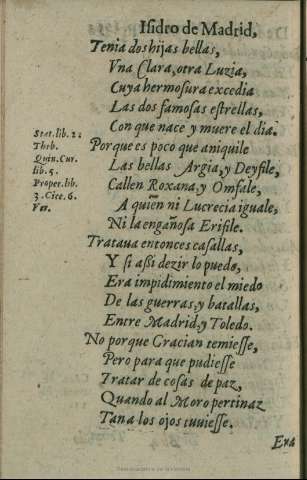 Isidro de Madrid,
Tenia dos hijas bellas,
Vna Clara, otra Luzia,
Cuya hermosura excedia
Las dos famosas estrellas,
Con que nace y muere el dia.
Stat. lib. 2:
Theb.
Quin. Cur.
lib. 5.
Proper. lib.
3. Cice. 6.
Ver.
Porque es poco que aniquile
Las bellas Argia, y Deyfile,
Callen Roxana, y Omfale,
A quien ni Lucrecia iguale,
Ni la engañosa Erifile.
Trataua entonces casallas,
Y si assi dezir lo puedo,
Era impidimiento el miedo
De las guerras, y batallas,
Entre Madrid, y Toledo.
No porque Gracian temiesse,
Pero para que pudiesse
Tratar de cosas de paz,
Quando al Moro pertinaz
Tan a los ojos tuuiesse.
Era